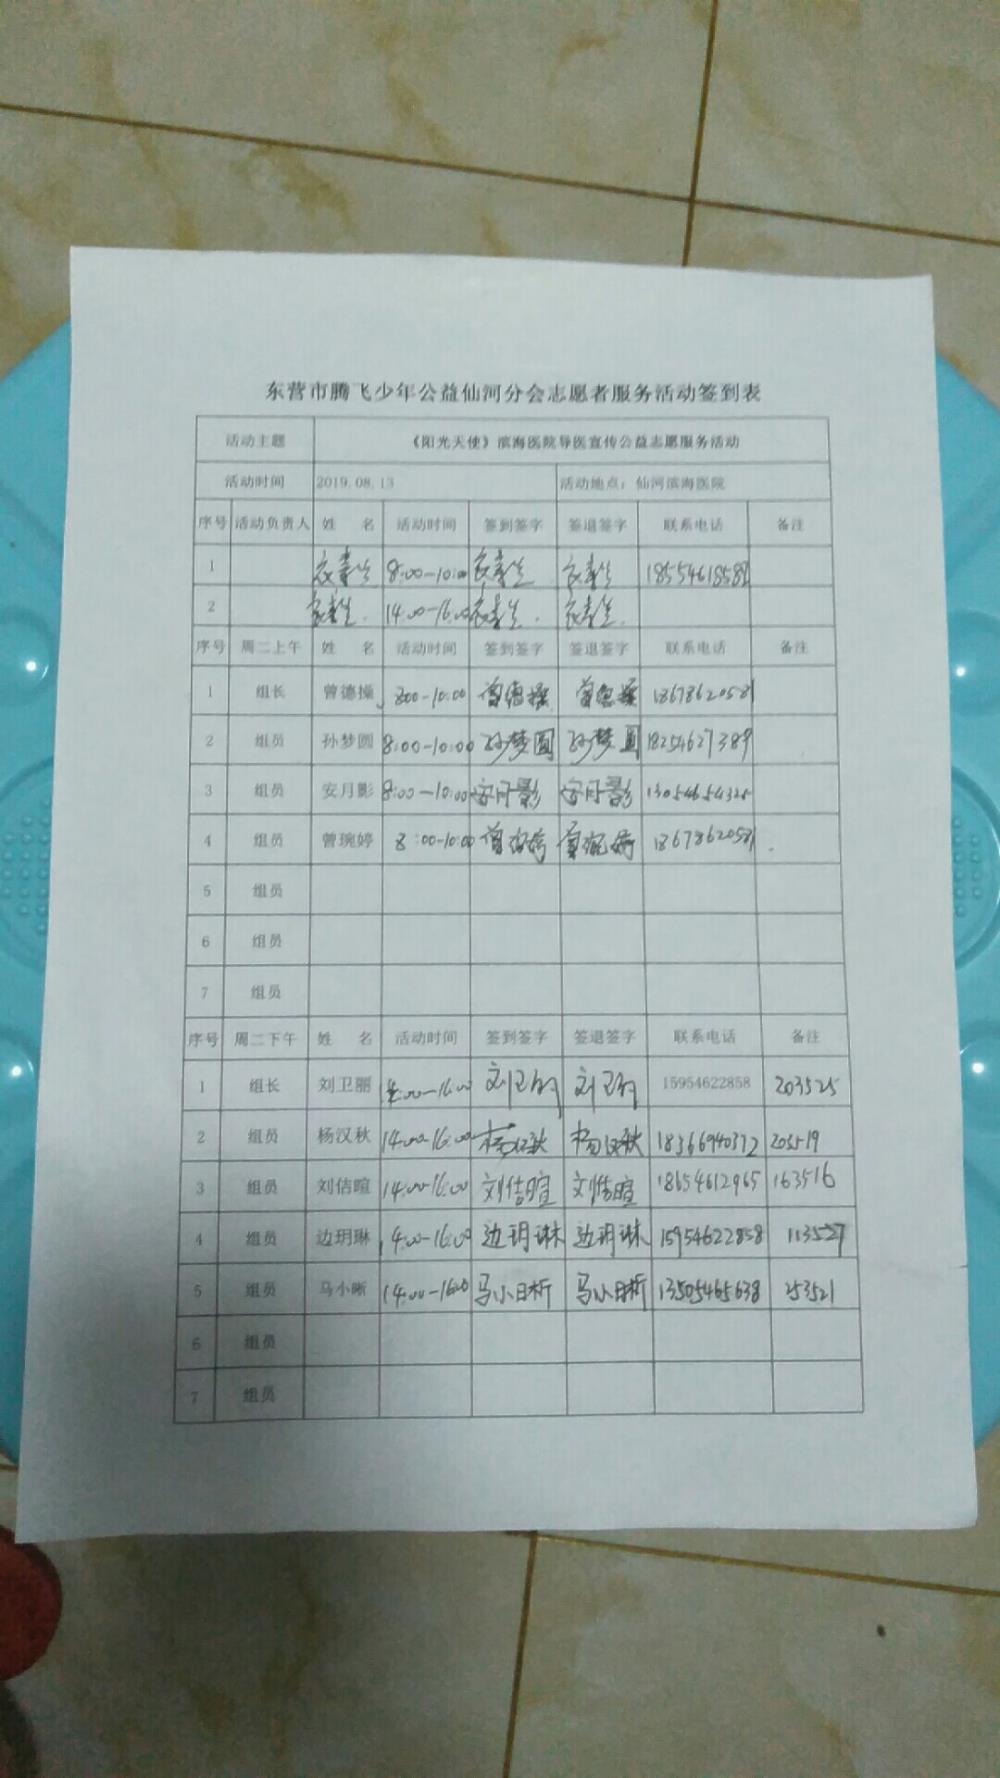 东营市腾飞少年公益仙河分会志愿者服务活动签到表
活动主题 《阳光天使》滨海医院导医宣传公益志愿服务活动
活动时间 2019.08.13 活动地点：仙河滨海医院
序号 活动负责人 姓 名 活动时间 签到签字 签退签字 联系电话 备注
1 8:00-10:00
2 14:00-16:00
序号 周二上午 姓 名 活动时间 签到签字 签退签字 联系电话 备注
1 组长 曾德操 8:00-10:00 曾德操 曾德操 18678620581
2 组员 孙梦圆 8:00-10:00 孙梦圆 孙梦圆 18254627389
3 组员 安月影 8:00-10:00 安月影 安月影
4 组员 曾琬婷 8:00-10:00 曾琬婷 曾琬婷 18678620581
5 组员
6 组员
7 组员
序号 周二下午 姓 名 活动时间 签到签字 签退签字 联系电话 备注
1 组长 刘卫丽 14:00-16:00 刘卫丽 刘卫丽 15954622858 203525
2 组员 杨汉秋 14:00-16:00 杨汉秋 杨汉秋 18366940372 203519
3 组员 刘佶暄 14:00-16:00 刘佶暄 刘佶暄 18654612965 163516
4 组员 边玥琳 14:00-16:00 边玥琳 边玥琳 15954622858 113527
5 组员 马小晰 14:00-16:00 马小晰 马小晰 13505465638 253521
6 组员
7 组员